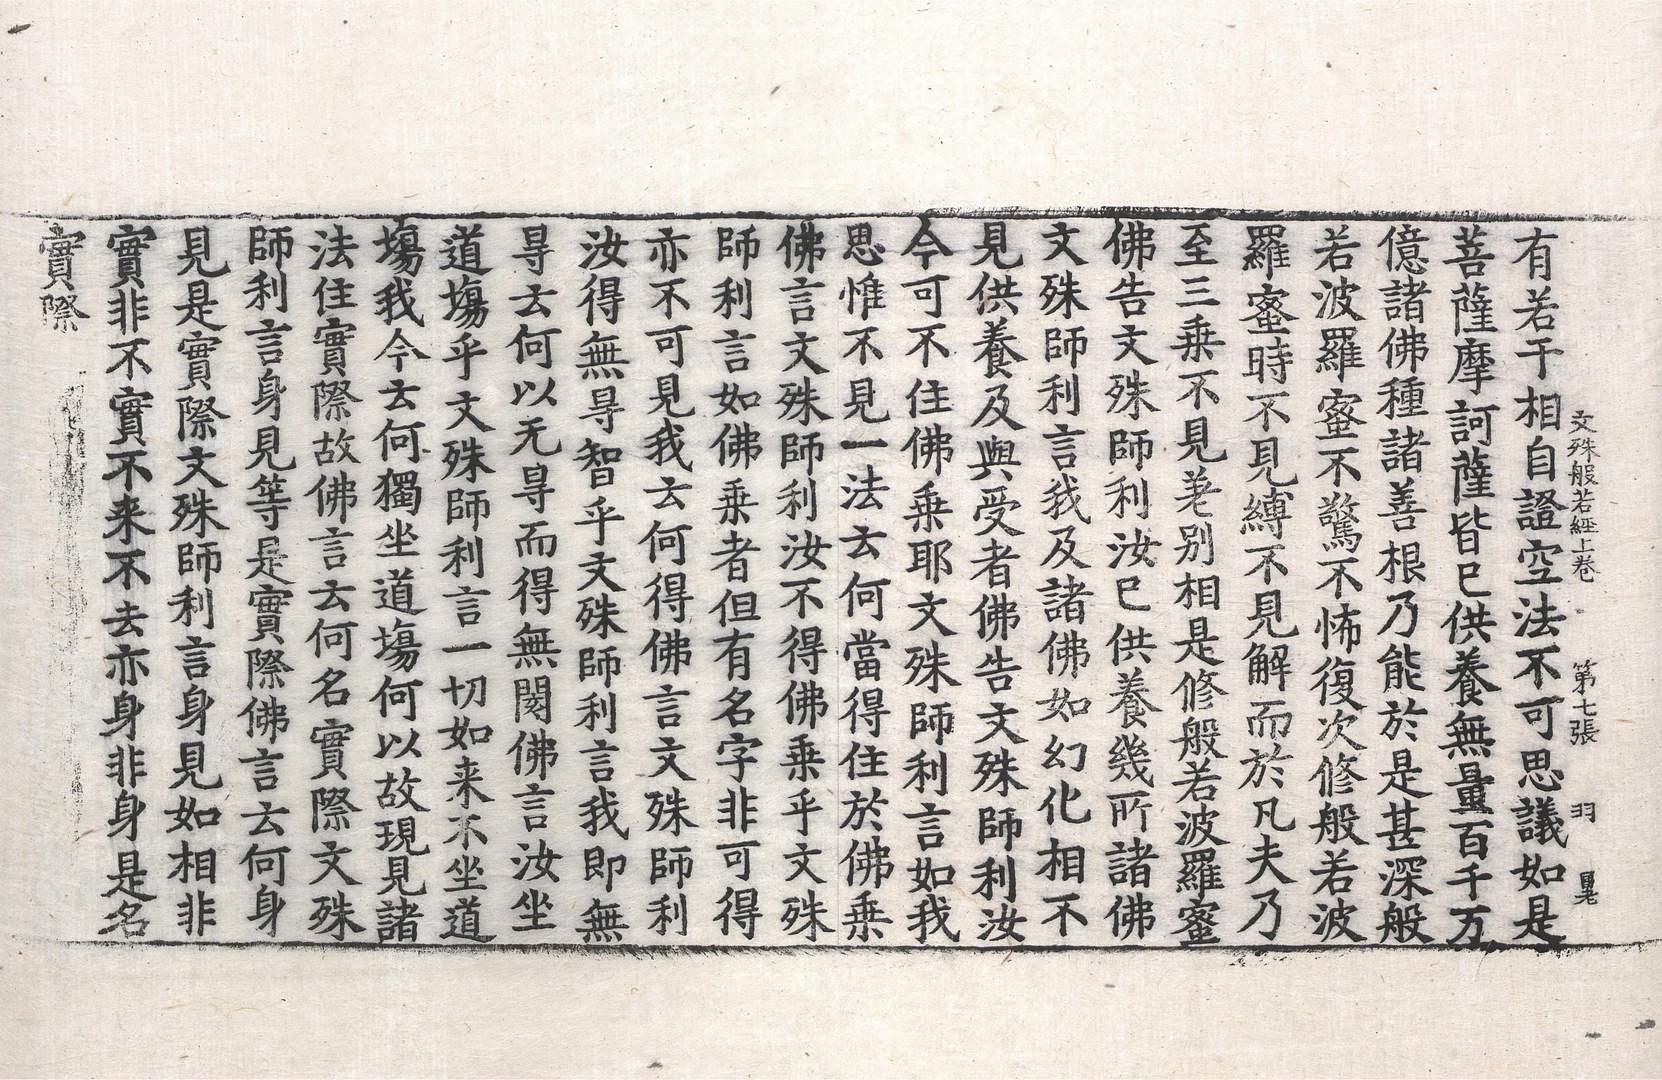 文殊般若經上卷 第七張 羽
有若干相自證空法不可思議如是
菩薩摩訶薩皆已供養無量百千万
億諸佛種諸善根乃能於是甚深般
若波羅蜜不驚不怖復次修般若波
羅蜜時不見縛不見解而於凡夫乃
至三乗不見差别相是修般若波羅蜜
佛告文殊師利汝已供養幾所諸佛
文殊師利言我及諸佛如幻化相不
見供養及與受者佛告文殊師利汝
今可不住佛乗耶文殊師利言如我
思惟不見一法云何當得住於佛乗
佛言文殊師利汝不得佛乗乎文殊
師利言如佛乗者但有名字非可得
亦不可見我云何得佛言文殊師利
汝得無㝵智乎文殊師利言我即無
㝵云何以无㝵而得無閡佛言汝坐
道塲乎文殊師利言一切如来不坐道
塲我今云何獨坐道塲何以故現見諸
法住實際故佛言云何名實際文殊
師利言身見等是實際佛言云何身
見是實際文殊師利言身見如相非
實非不實不来不去亦身非身是名
實際